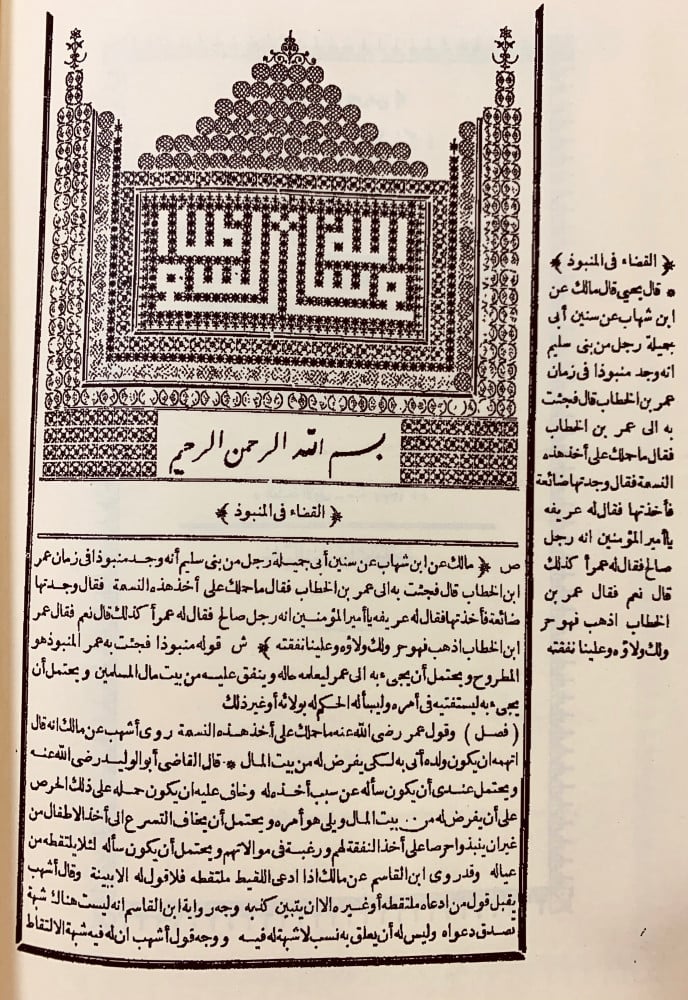 بسم الله الرحمن الرحيم
﴿ القضاء فى المنبوذ ﴾
ص ﴿ مالك عن ابن شهاب عن سنين أبى جميلة رجل من بنى سليم أنه وجد منبوذا فى زمان عمر
ابن الخطاب قال فجئت به الى عمر بن الخطاب فقال ما حملك على أخذ هذه النسمة فقال وجدتها
ضائعة فأخذتها فقال له عريفه يا أمير المؤمنين انه رجل صالح فقال له عمر أكذلك قال نعم فقال عمر
ابن الخطاب اذهب فهو حر ولك ولاؤه وعلينا نفقته ﴾ ش قوله منبوذا فجئت به عمر المنبوذ هو
المطروح ويحتمل أن يجىء به الى عمر ليعامه حاله وينفق عليه من بيت مال المسلمين ويحتمل أن
يجىء به ليستفتيه فى أمره وليسأله الحكم له بولائه أو غير ذلك
( فصل ) وقول عمر رضى الله عنه ما حملك على أخذ هذه النسمة روى أشهب عن مالك انه قال
اتهمه ان يكون ولده أتى به لكى يفرض له من بيت المال * قال القاضى أبو الوليد رضى الله عنه
ويحتمل عندى أن يكون سأله عن سبب أخذه له وخاف عليه ان يكون حمله على ذلك الحرص
على أن يفرض له من بيت المال ويلى هو أمره ويحتمل أن يخاف التسرع الى أخذ الاطفال من
غير ان ينبذوا حرصا على أخذ النفقة لهم ورغبة فى موالاتهم ويحتمل أن يكون سأله لئلا يلتقطه من
عياله وقد روى ابن القاسم عن مالك اذا ادعى اللقيط ملتقطه فلا قول له الا ببينة وقال أشهب
يقبل قول من ادعاه ملتقطه أو غيره الا ان يتبين كذبه وجه رواية ابن القاسم انه ليست هناك شبهة
تصدق دعواه وليس له أن يعلق به نسب لا شبهة له فيه ووجه قول أشهب ان له فيه شبهة الالتقاط
﴿ القضاء فى المنبوذ ﴾
* قال يحيى قال مالك عن
ابن شهاب عن سنين أبى
جميلة رجل من بنى سليم
انه وجد منبوذا فى زمان
عمر بن الخطاب قال فجئت
به الى عمر بن الخطاب
فقال ما حملك على أخذ هذه
النسمة فقال وجدتها ضائعة
فأخذتها فقال له عريفه
يا أمير المؤمنين انه رجل
صالح فقال له عمر أكذلك
قال نعم فقال عمر بن
الخطاب اذهب فهو حر
ولك ولاؤه وعلينا نفقته